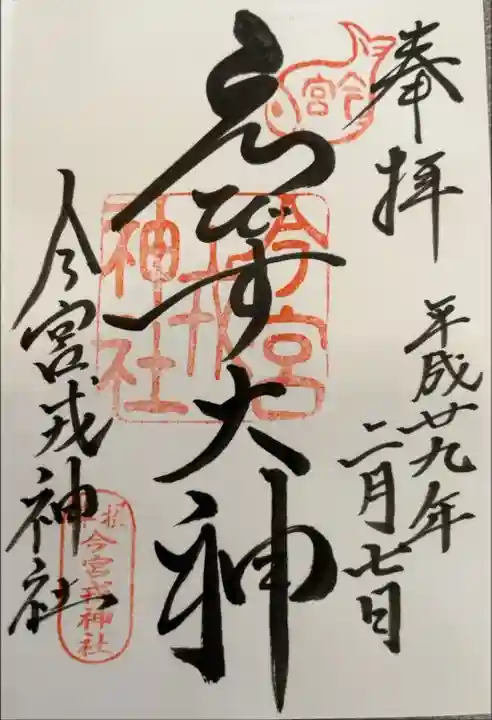 奉拝
平成廿九年
二月七日
今宮
ゑびす大神
今宮
戎
神社
今宮戎神社
今宮戎神社